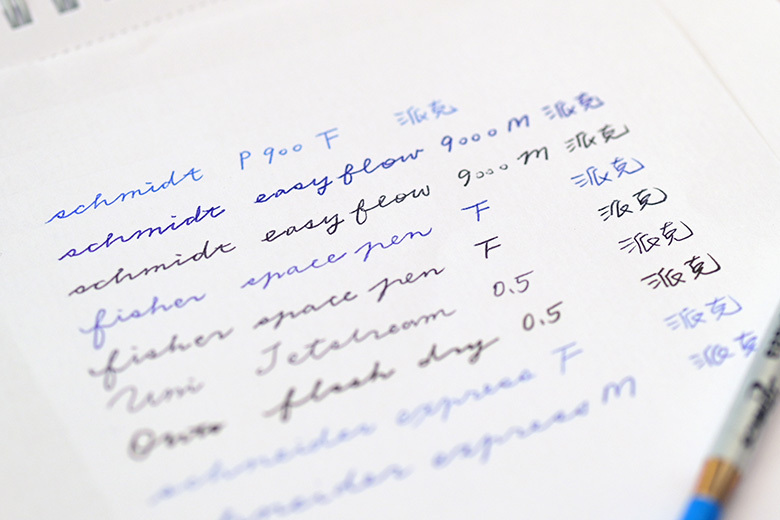 schmidt P900 F 派克
schmidt easyflow 9000 M 派克
schmidt easyflow 9000 M 派克
fisher space pen F 派克
fisher space pen F 派克
Uni Jetstream 0.5 派克
Onto flash dry 0.5 派克
schneider express F 派克
schneider express M 派克